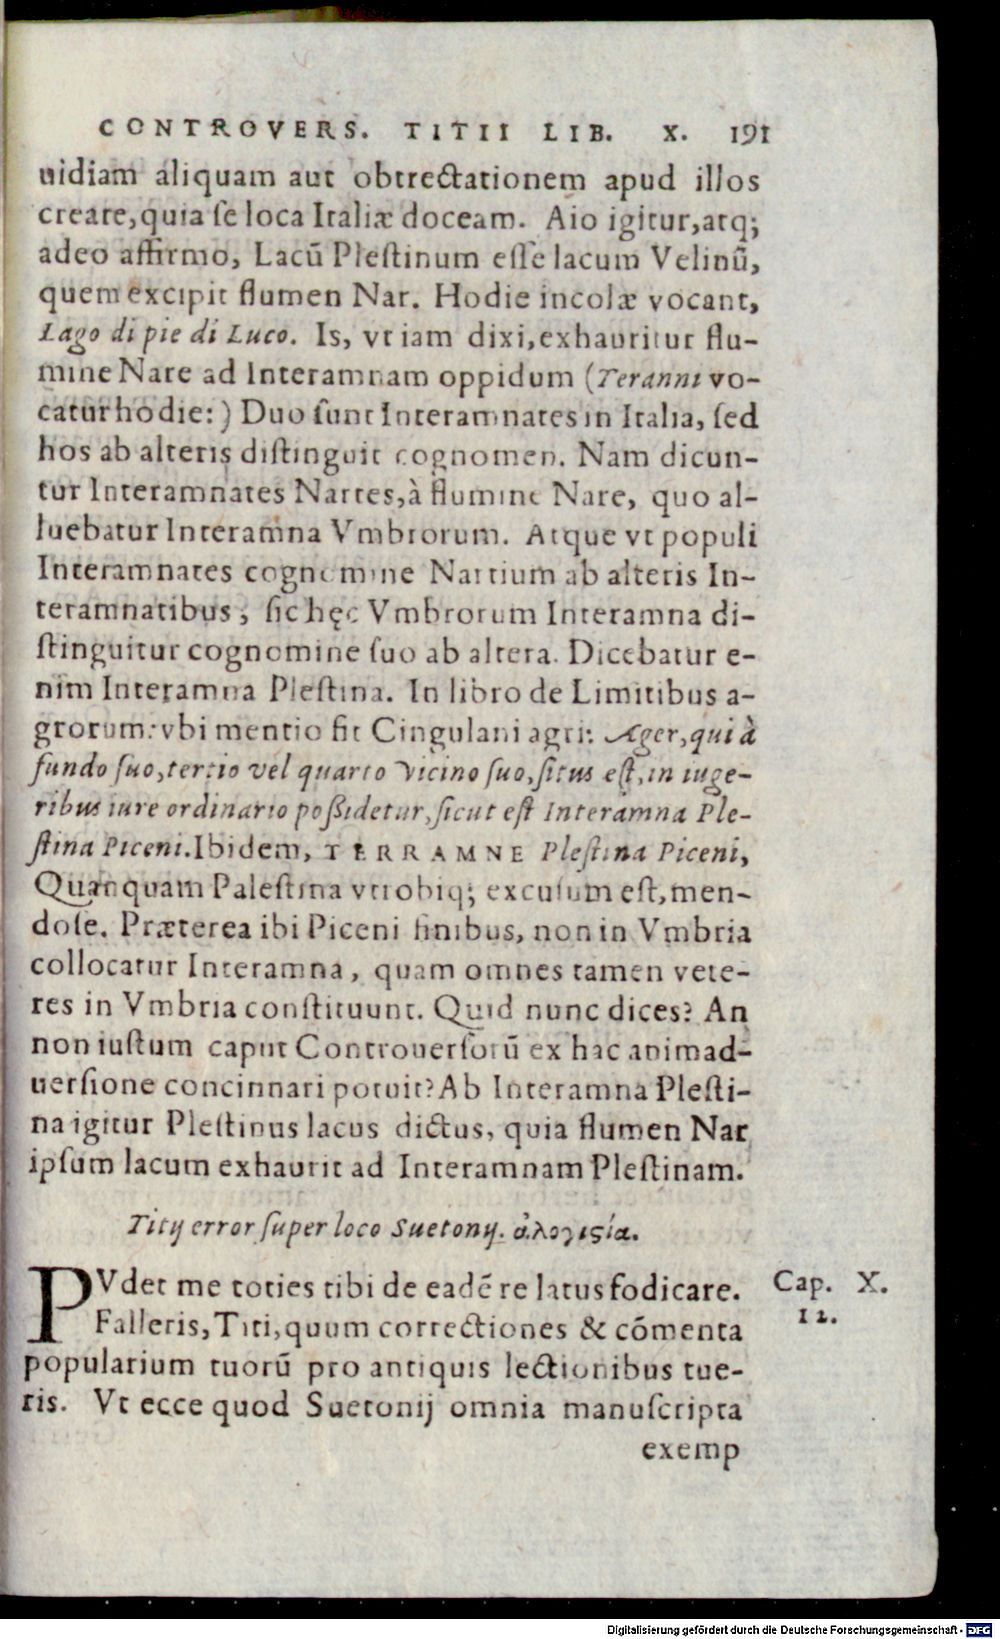 CONTROVERS. TITII LIB. X. 191
uidiam aliquam aut obtrectationem apud illos
creare, quia ſe loca Italiæ doceam. Aio igitur, atq;
adeo affirmo, Lacū Pleſtinum eſſe lacum Velinū,
quem excipit flumen Nar. Hodie incolæ vocant,
Lago di pie di Luco. Is, vt iam dixi, exhauritur flu-
mine Nare ad Interamnam oppidum (Teranni vo-
catur hodie:) Duo ſunt Interamnates in Italia, ſed
hos ab alteris diſtinguit cognomen. Nam dicun-
tur Interamnates Nartes, à flumine Nare, quo al-
luebatur Interamna Vmbrorum. Atque vt populi
Interamnates cognomine Nartium ab alteris In-
teramnatibus, ſic hęc Vmbrorum Interamna di-
ſtinguitur cognomine ſuo ab altera. Dicebatur e-
nim Interamna Pleſtina. In libro de Limitibus a-
grorum: vbi mentio fit Cingulani agri: Ager, qui à
fundo ſuo, tertio vel quarto vicino ſuo, ſitus eſt, in iuge-
ribus iure ordinario poßidetur, ſicut eſt Interamna Ple-
ſtina Piceni. Ibidem, TERRAMNE Pleſtina Piceni,
Quanquam Paleſtina vtrobiq; excuſum eſt, men-
doſe. Præterea ibi Piceni finibus, non in Vmbria
collocatur Interamna, quam omnes tamen vete-
res in Vmbria conſtituunt. Quid nunc dices? An
non iuſtum caput Controuerſorū ex hac animad-
uerſione concinnari potuit? Ab Interamna Pleſti-
na igitur Pleſtinus lacus dictus, quia flumen Nar
ipſum lacum exhaurit ad Interamnam Pleſtinam.
Titij error ſuper loco Suetonij. ἀλογιςία.
PVdet me toties tibi de eadē re latus fodicare.
Cap. X.
Falleris, Titi, quum correctiones & cōmenta
12.
popularium tuorū pro antiquis lectionibus tue-
ris. Vt ecce quod Suetonij omnia manuſcripta
exemp
Digitalisierung gefördert durch die Deutsche Forschungsgemeinschaft - DFG